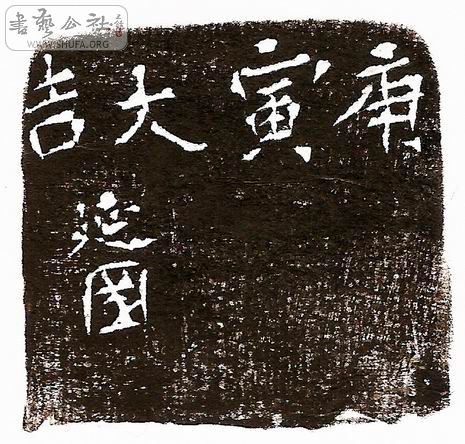 書藝公社
WWW.SHUFA.ORG
庚寅大吉
延國